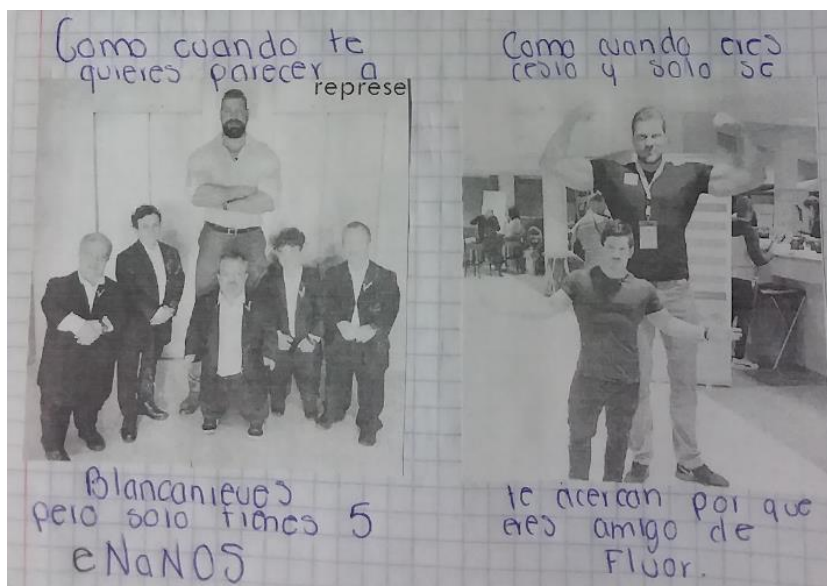 Como cuando te
quieres parecer a
represe
Blancanieves
pero solo tienes 5
eNaNOS
Como cuando eres
cesio y solo se
te acercan por que
eres amigo de
Fluor.